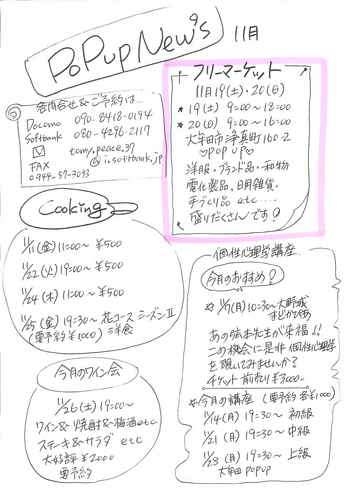 PoPup New's 11月
お問合せ&ご予約は…
Docomo 090-8418-0194
Softbank 080-4296-2117
tomy.peace.37
@i.softbank.jp
FAX
0944-57-3093
フリーマーケット
11月19(土)・20(日)
*19(土) 9:00~18:00
*20(日) 9:00~16:00
大牟田市浄真町160-2
♡POP UP♡
洋服・ブランド品・和物
電化製品、日用雑貨・
手づくり品 etc……
盛りだくさんです?
Cooking
11/1(金) 11:00~ ¥500
11/22(火) 19:00~ ¥500
11/24(木) 11:00~ ¥500
11/25(金) 19:30~ 花コース シーズンⅡ
(要予約 ¥1000) 洋食
今月のワイン会
11/26(土) 19:00~
ワイン&焼酎&梅酒etc
ステーキ&サラダ etc
大好評 ¥2000
要予約
個性心理学講座
今月のおすすめ?
11/7(月) 10:30~ 大野城
まどかぴあ
あの弦本先生が来福!!
この機会に是非 個性心理学
を覗いてみませんか?
チケット 前売り ¥3000-
*今月の講座 (要予約 各¥1000)
11/14(月) 19:30~ 初級
11/21(月) 19:30~ 中級
11/28(月) 19:30~ 上級
大牟田 popup